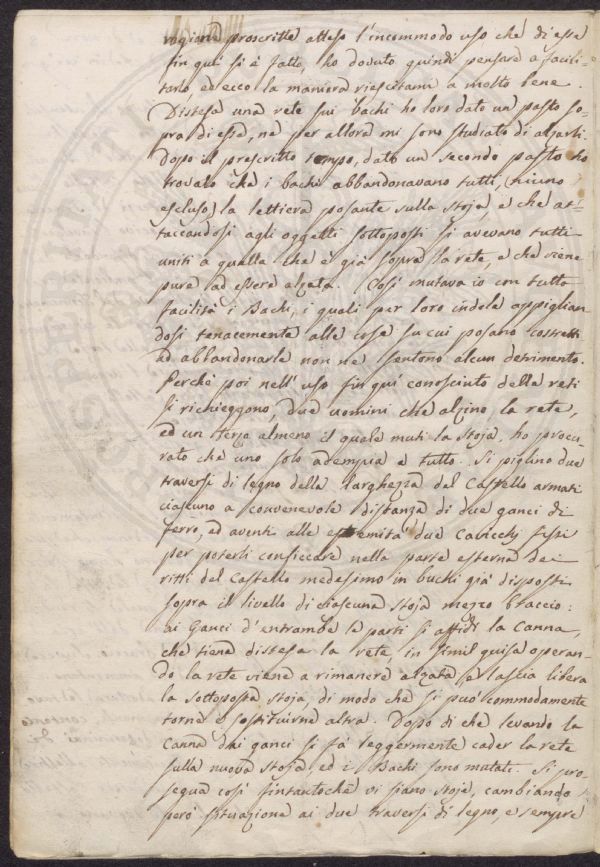 ragione proscritte atteso l'incommodo uso che di esse
fin qui si è fatto, ho dovuto quindi pensare a facili-
tarlo ed ecco la maniera riescitami a molto bene.
Distesa una rete sui bachi ho loro dato un pasto so-
pra di essa, nè per allora mi sono studiato di alzarli.
Dopo il prescritto tempo, dato un secondo pasto ho
trovato che i bachi abbandonavano tutti, (niuno
escluso) la lettiera posante sulla stoja, e che at-
taccandosi agli oggetti sottoposti si avevano tutti
uniti a quella che è già sopra la rete, e che viene
pure ad essere alzata. Così mutava io con tutta
facilità i Bachi, i quali per loro indole appiglian-
dosi tenacemente alle cose su cui posano costretti
ad abbandonarle non ne sentono alcun detrimento.
Perchè poi nell'uso fin quì conosciuto delle reti
si richieggono, due uomini che alzino, la rete,
ed un terzo almeno il quale muti la stoja, ho procu-
rato che uno solo adempia a tutto. Si piglino due
traversi di legno della larghezza del Castello armati
ciascuno a convenevole distanza di due ganci di
ferro, ed aventi alle estremità due Cavicchj fissi
per poterli conficcare nella parte esterna dei
ritti del Castello medesimo in buchi già disposti
sopra il livello di ciascuna stoja mezzo braccio:
ai Ganci d'entrambe le parti si affidi la Canna,
che tiene distesa la rete, in simil guisa operan-
do la rete viene a rimanere alzata e lascia libera
la sottoposta stoja, di modo che si può commodamente
torre e sostituirne altra. Dopo di che levando la
Canna dai ganci si fà leggermente cader la rete
sulla nuova stoja ed i Bachi sono mutati. Si pro-
segua così fintantochè vi siano stoje, cambiando
però situazione ai due traversi di legno, e sempre